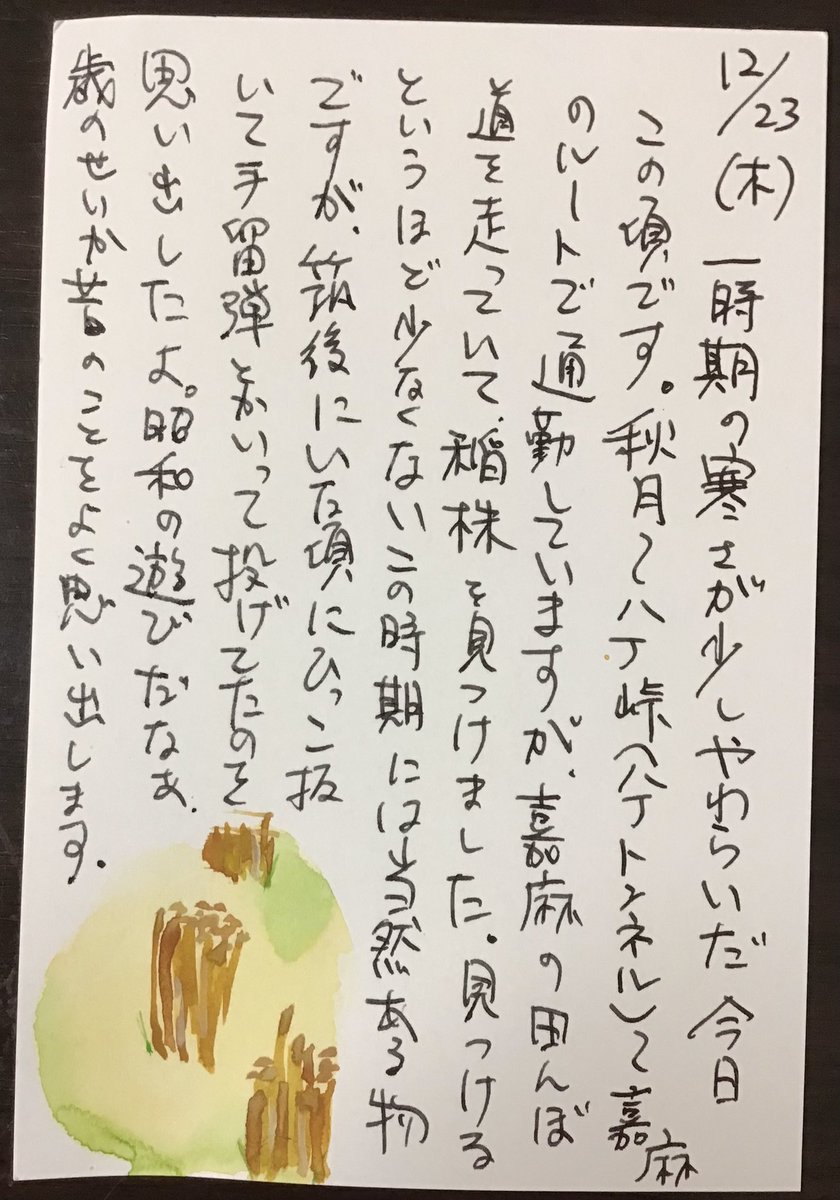 12/23(木) 一時期の寒さが少しやわらいだ 今日
この頃です。秋月〜八丁峠(八丁トンネル)〜嘉麻
のルートで通勤していますが、嘉麻の田んぼ
道を走っていて、稲株を見つけました。見つける
というほど少なくないこの時期には当然ある物
ですが、筑後にいた頃にひっこ抜
いて手留弾とかいって投げてたのを
思い出したよ。昭和の遊びだなぁ、
歳のせいか昔のことをよく思い出します。